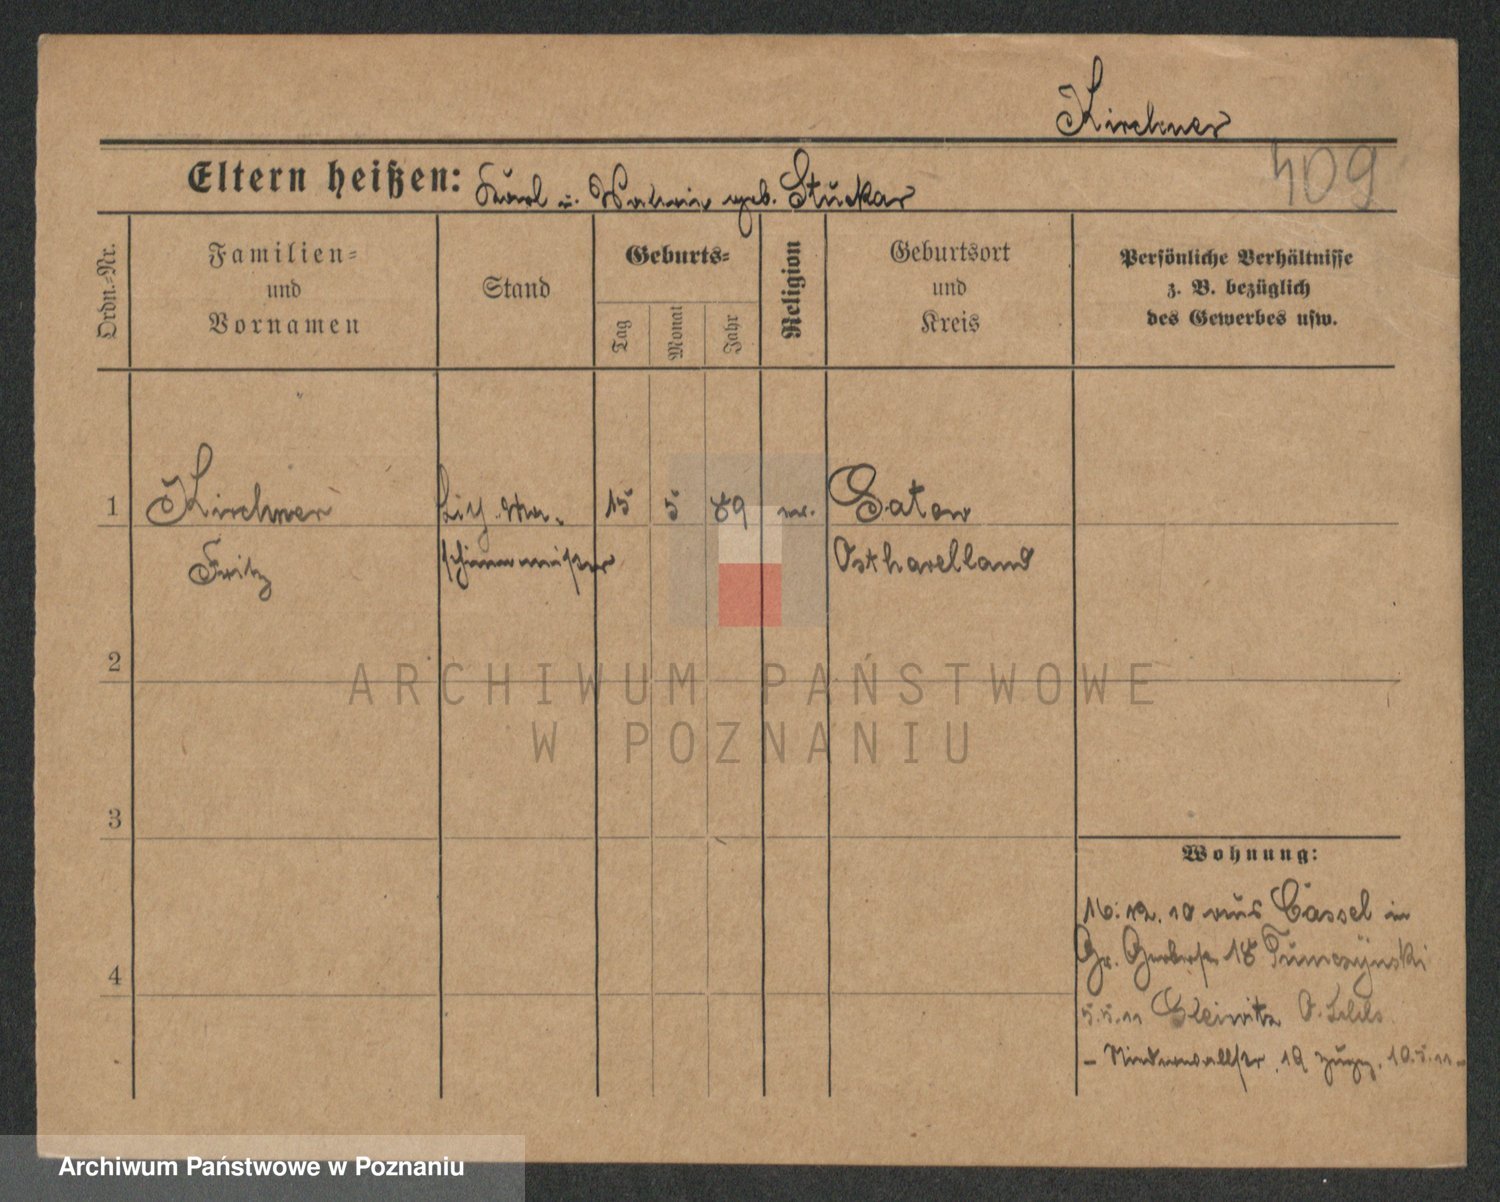 Kirchner
409
Eltern heißen: Karl u. geb. Stuckar
Ordn.-Nr.
Familien-
und
Vornamen
Stand
Geburts-
Tag
Monat
Jahr
Religion
Geburtsort
und
Kreis
Persönliche Verhältnisse
z. B. bezüglich
des Gewerbes usw.
1 Kirchner 15 5 89 Satow
Fritz schinenmeister Osthavelland
2
3
4
Wohnung:
16.12.10 aus Cassel in
Gr. Gerberstr. 18
5.5.11 Gleiwitz O. Schles.
– Niederwallstr. 19 zugz. 10.5.11 –
ARCHIWUM PAŃSTWOWE
W POZNANIU
Archiwum Państwowe w Poznaniu